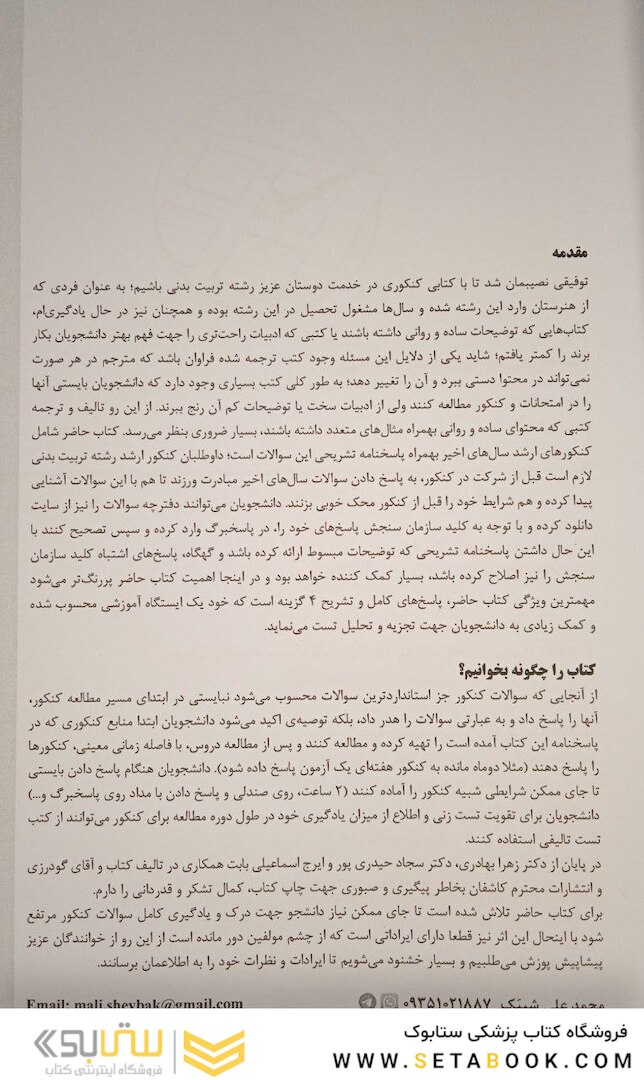 مقدمه
توفیقی نصیبمان شد تا با کتابی کنکوری در خدمت دوستان عزیز رشته تربیت بدنی باشیم؛ به عنوان فردی که
از هنرستان وارد این رشته شده و سال‌ها مشغول تحصیل در این رشته بوده و همچنان نیز در حال یادگیری‌ام،
کتاب‌هایی که توضیحات ساده و روانی داشته باشند یا کتبی که ادبیات راحت‌تری را جهت فهم بهتر دانشجویان بکار
برند را کمتر یافتم؛ شاید یکی از دلایل این مسئله وجود کتب ترجمه شده فراوان باشد که مترجم در هر صورت
نمی‌تواند در محتوا دستی ببرد و آن را تغییر دهد؛ به طور کلی کتب بسیاری وجود دارد که دانشجویان بایستی آنها
را در امتحانات و کنکور مطالعه کنند ولی از ادبیات سخت یا توضیحات کم آن رنج ببرند. از این رو تالیف و ترجمه
کتبی که محتوای ساده و روانی بهمراه مثال‌های متعدد داشته باشند، بسیار ضروری بنظر می‌رسد. کتاب حاضر شامل
کنکورهای ارشد سال‌های اخیر بهمراه پاسخنامه تشریحی این سوالات است؛ داوطلبان کنکور ارشد رشته تربیت بدنی
لازم است قبل از شرکت در کنکور، به پاسخ دادن سوالات سال‌های اخیر مبادرت ورزند تا هم با این سوالات آشنایی
پیدا کرده و هم شرایط خود را قبل از کنکور محک خوبی بزنند. دانشجویان می‌توانند دفترچه سوالات را نیز از سایت
دانلود کرده و با توجه به کلید سازمان سنجش پاسخ‌های خود را، در پاسخبرگ وارد کرده و سپس تصحیح کنند با
این حال داشتن پاسخنامه تشریحی که توضیحات مبسوط ارائه کرده باشد و گهگاه، پاسخ‌های اشتباه کلید سازمان
سنجش را نیز اصلاح کرده باشد، بسیار کمک کننده خواهد بود و در اینجا اهمیت کتاب حاضر پررنگ‌تر می‌شود
مهمترین ویژگی کتاب حاضر، پاسخ‌های کامل و تشریح ۴ گزینه است که خود یک ایستگاه آموزشی محسوب شده
و کمک زیادی به دانشجویان جهت تجزیه و تحلیل تست می‌نماید.
کتاب را چگونه بخوانیم؟
از آنجایی که سوالات کنکور جز استانداردترین سوالات محسوب می‌شود نبایستی در ابتدای مسیر مطالعه کنکور،
آنها را پاسخ داد و به عبارتی سوالات را هدر داد، بلکه توصیه‌ی اکید می‌شود دانشجویان ابتدا منابع کنکوری که در
پاسخنامه این کتاب آمده است را تهیه کرده و مطالعه کنند و پس از مطالعه دروس، با فاصله زمانی معینی، کنکورها
را پاسخ دهند (مثلا دوماه مانده به کنکور هفته‌ای یک آزمون پاسخ داده شود). دانشجویان هنگام پاسخ دادن بایستی
تا جای ممکن شرایطی شبیه کنکور را آماده کنند (۲ ساعت، روی صندلی و پاسخ دادن با مداد روی پاسخبرگ و...)
دانشجویان برای تقویت تست زنی و اطلاع از میزان یادگیری خود در طول دوره مطالعه برای کنکور می‌توانند از کتب
تست تالیفی استفاده کنند.
در پایان از دکتر زهرا بهادری، دکتر سجاد حیدری پور و ایرج اسماعیلی بابت همکاری در تالیف کتاب و آقای گودرزی
و انتشارات محترم کاشفان بخاطر پیگیری و صبوری جهت چاپ کتاب، کمال تشکر و قدردانی را دارم.
برای کتاب حاضر تلاش شده است تا جای ممکن نیاز دانشجو جهت درک و یادگیری کامل سوالات کنکور مرتفع
شود با اینحال این اثر نیز قطعا دارای ایراداتی است که از چشم مولفین دور مانده است از این رو از خوانندگان عزیز
پیشاپیش پوزش می‌طلبیم و بسیار خشنود می‌شویم تا ایرادات و نظرات خود را به اطلاعمان برسانند.
محمدعلی شیبَک ۰۹۳۵۱۰۲۱۸۸۷ Email: mali.sheybak@gmail.com
فروشگاه کتاب پزشکی ستابوک
WWW.SETABOOK.COM
ستابوک
فروشگاه اینترنتی کتاب